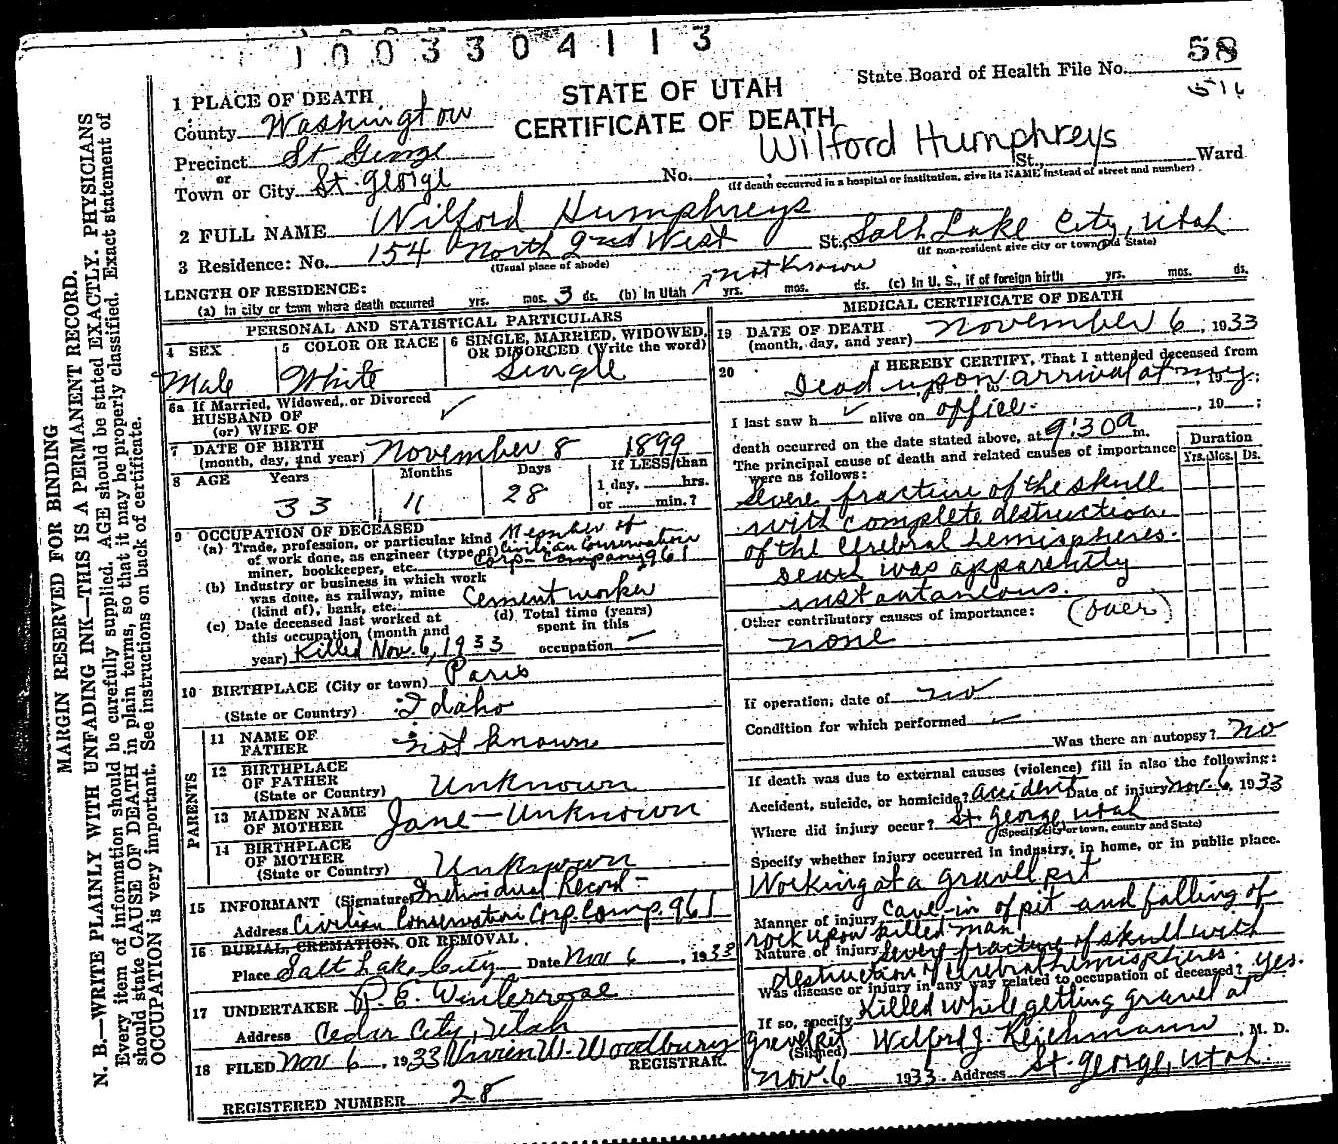 1003304113
58
State Board of Health File No.
1 PLACE OF DEATH
STATE OF UTAH
CERTIFICATE OF DEATH
County Washington
Wilford Humphreys
Precinct St George
or
Town or City St. George No. , St., Ward
(If death occurred in a hospital or institution, give its NAME instead of street and number)
2 FULL NAME Wilford Humphreys
3 Residence: No. 154 North 2nd West St., Salt Lake City, Utah
(Usual place of abode)
(If non-resident give city or town and State)
LENGTH OF RESIDENCE:
(a) In city or town where death occurred yrs. mos. 3 ds. (b) In Utah not known yrs. mos. ds. (c) In U. S., if of foreign birth yrs. mos. ds.
PERSONAL AND STATISTICAL PARTICULARS
4 SEX
Male
5 COLOR OR RACE
White
6 SINGLE, MARRIED, WIDOWED,
OR DIVORCED (Write the word)
Single
6a If Married, Widowed, or Divorced
HUSBAND OF
(or) WIFE OF
7 DATE OF BIRTH
(month, day, and year) November 8 1899
8 AGE Years Months Days If LESS than
33 11 28 1 day, hrs.
or min.?
9 OCCUPATION OF DECEASED
(a) Trade, profession, or particular kind Member of
of work done, as engineer (type of) Civilian Conservation
miner, bookkeeper, etc. Corp- Company 961
(b) Industry or business in which work
was done, as railway, mine
(kind of), bank, etc. Cement worker
(c) Date deceased last worked at
this occupation (month and
year) Killed Nov. 6, 1933
(d) Total time (years)
spent in this
occupation
10 BIRTHPLACE (City or town) Paris
(State or Country) Idaho
PARENTS
11 NAME OF
FATHER not known
12 BIRTHPLACE
OF FATHER
(State or Country) Unknown
13 MAIDEN NAME
OF MOTHER Jane - Unknown
14 BIRTHPLACE
OF MOTHER
(State or Country) Unknown
15 INFORMANT (Signature) Individual Record -
Address Civilian Conservation Corp. Comp. 961
16 BURIAL, CREMATION, OR REMOVAL
Place Salt Lake City Date Nov 6, 1933
17 UNDERTAKER R. E. Winterrose
Address Cedar City, Utah
18 FILED Nov 6, 1933 Vivien W. Woodbury
REGISTRAR.
REGISTERED NUMBER 28
MEDICAL CERTIFICATE OF DEATH
19 DATE OF DEATH
(month, day, and year) November 6, 1933
20 I HEREBY CERTIFY, That I attended deceased from
Dead upon arrival at my, 19 ;
I last saw h alive on office. , 19 ;
death occurred on the date stated above, at 9:30 a m.
The principal cause of death and related causes of importance
were as follows:
Duration
Yrs. Mos. Ds.
Severe fracture of the skull
with complete destruction
of the cerebral hemispheres.
Death was apparently
instantaneous.
Other contributory causes of importance: (over)
none
If operation, date of no
Condition for which performed
Was there an autopsy? No
If death was due to external causes (violence) fill in also the following:
Accident, suicide, or homicide? accident Date of injury Nov. 6, 1933
Where did injury occur? St. George, Utah
(Specify city or town, county and State)
Specify whether injury occurred in industry, in home, or in public place.
Working at a gravel pit
Manner of injury Cave-in of pit and falling of
rock upon killed man
Nature of injury Severe fracture of skull with
destruction of cerebral hemispheres.
Was disease or injury in any way related to occupation of deceased? Yes.
If so, specify Killed while getting gravel at
gravel pit
(Signed) Wilford J. Reichmann, M. D.
Nov. 6 1933. Address St. George, Utah.
MARGIN RESERVED FOR BINDING
N. B.—WRITE PLAINLY WITH UNFADING INK—THIS IS A PERMANENT RECORD.
Every item of information should be carefully supplied. AGE should be stated EXACTLY. PHYSICIANS
should state CAUSE OF DEATH in plain terms, so that it may be properly classified. Exact statement of
OCCUPATION is very important. See instructions on back of certificate.